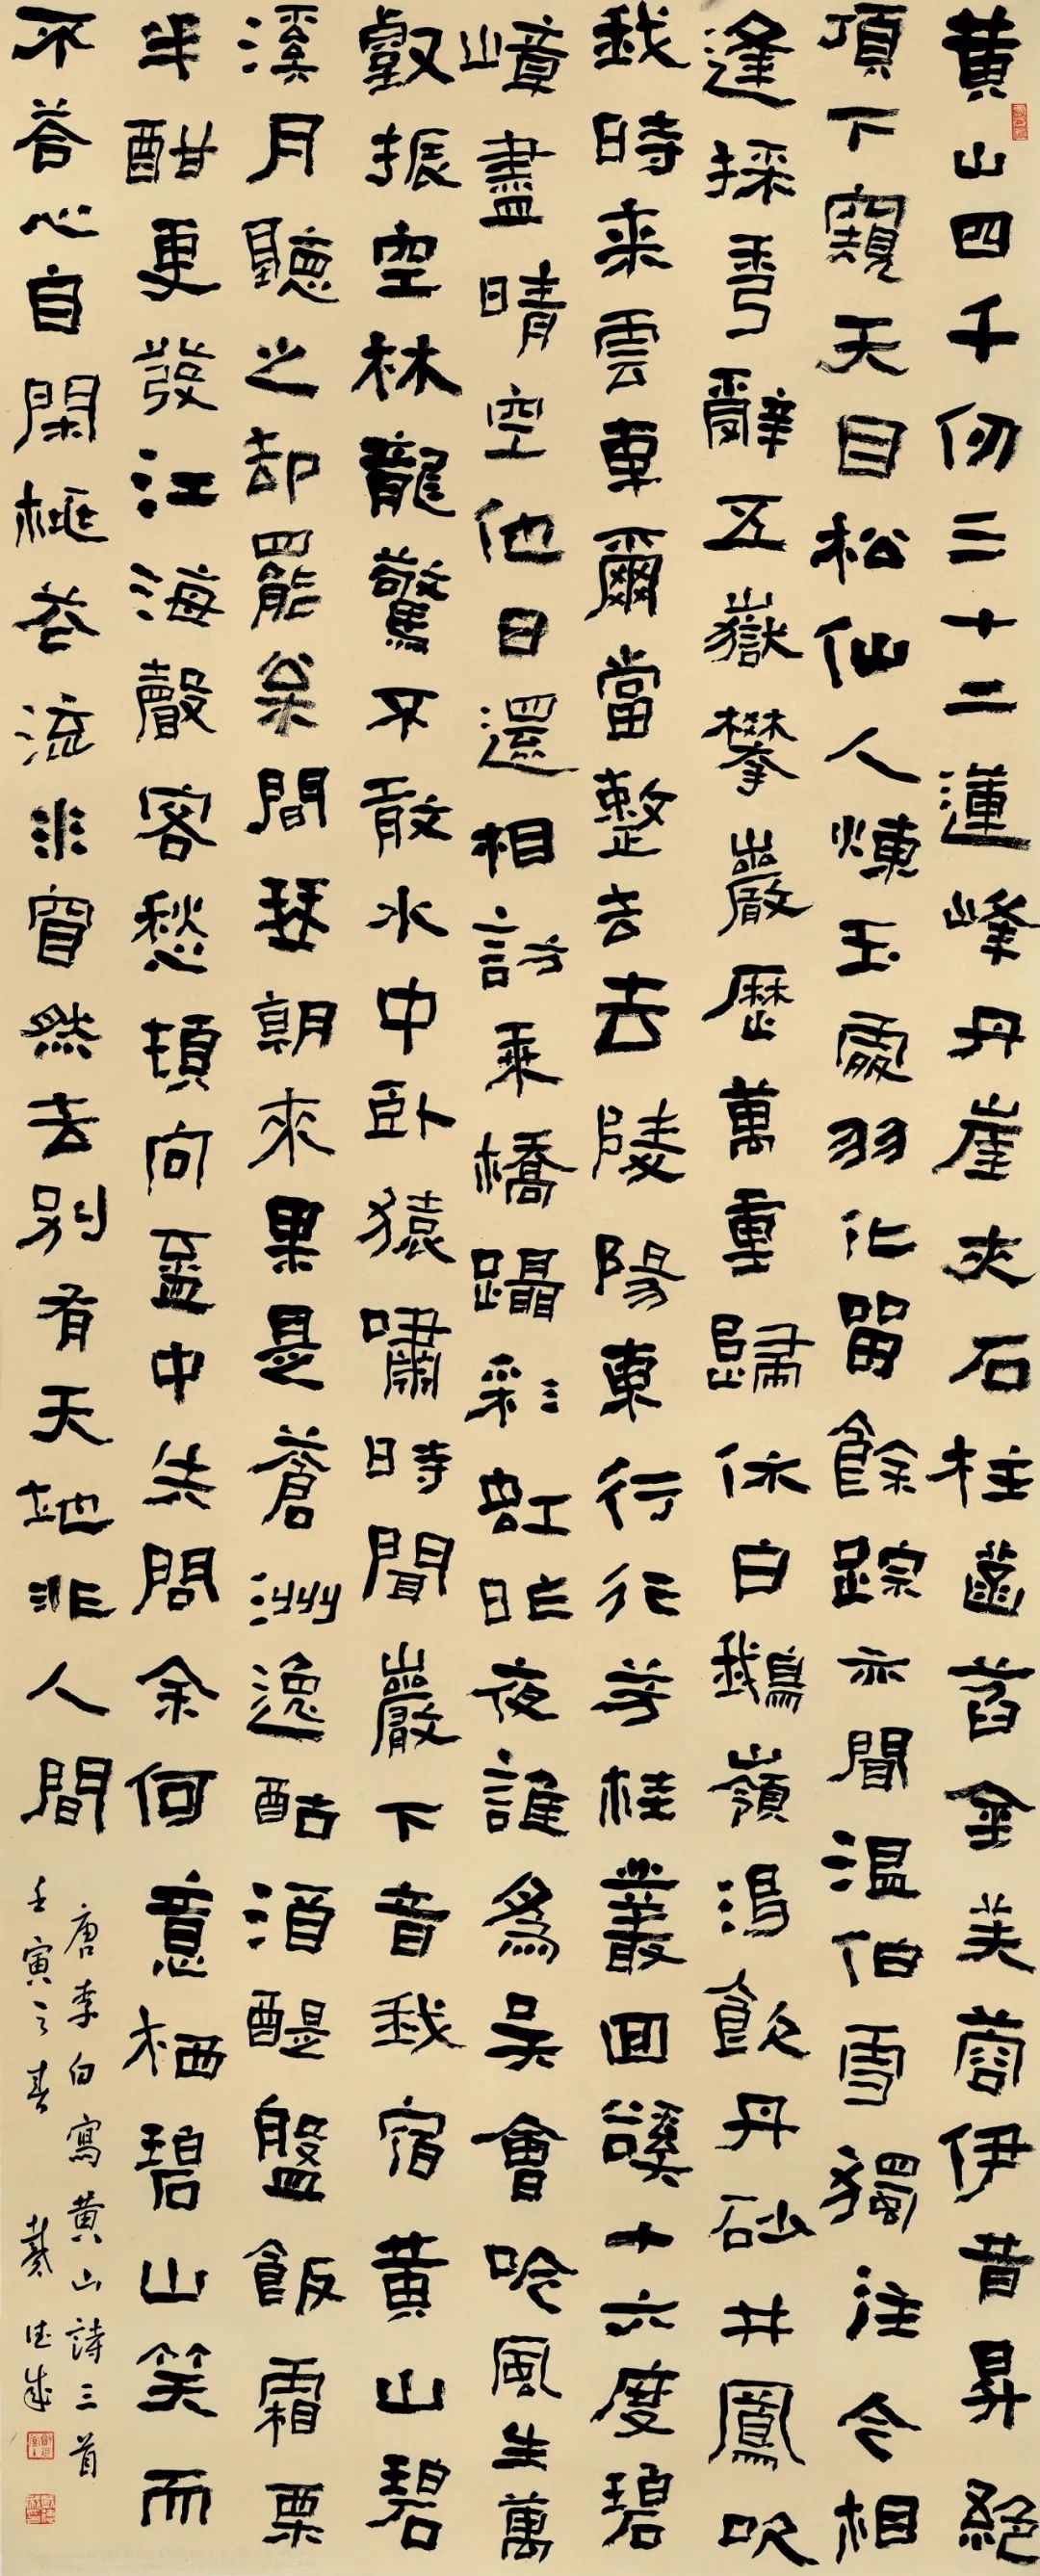 黄山四千仞三十二蓮峰丹崖夾石柱菡萏金芙蓉伊昔昇絕
頂下窺天目松仙人煉玉處羽化留餘踪亦聞温伯雪獨往今相
逢採秀辭五嶽攀巖歷萬重歸休白鵝嶺渴飲丹砂井鳳吹
我時來雲車爾當整去去陵陽東行行芳桂叢回谿十六度碧
嶂盡晴空他日還相訪乘橋躡彩虹昨夜誰為吴會吟風生萬
壑振空林龍驚不敢水中卧猿嘯時聞巖下音我宿黄山碧
溪月聽之却罷枀間琴朝來果是蒼洲逸酤酒醍盤飯霜栗
半酣更發江海聲客愁頓向盃中失問余何意栖碧山笑而
不荅心自閑桃花流水窅然去別有天地非人間
唐李白寫黄山詩三首
壬寅之春